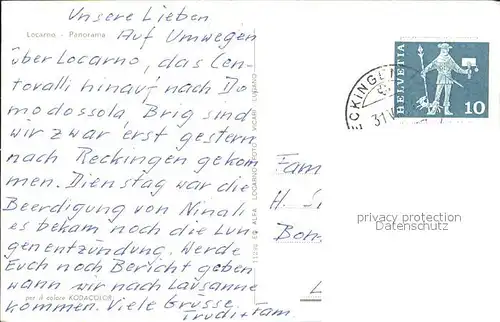 Unsere Lieben
Locarno - Panorama
Auf Umwegen
über Locarno, das Cen-
tovalli hinauf nach Do
modossola, Brig sind
wir zwar erst gestern
nach Reckingen gekom
men. Dienstag war die
Beerdigung von Ninali
es bekam noch die Lun
genentzündung. Werde
Euch noch Bericht geben
wann wir nach Lausanne
kommen. Viele Grüsse.
per il colore KODACOLOR
Trudi + Fam
ED. ALFA LOCARNO FOTO VICARI LUGANO
ECKINGEN
31
HELVETIA
10
Fam
H.
Bon
L
privacy protection
Datenschutz